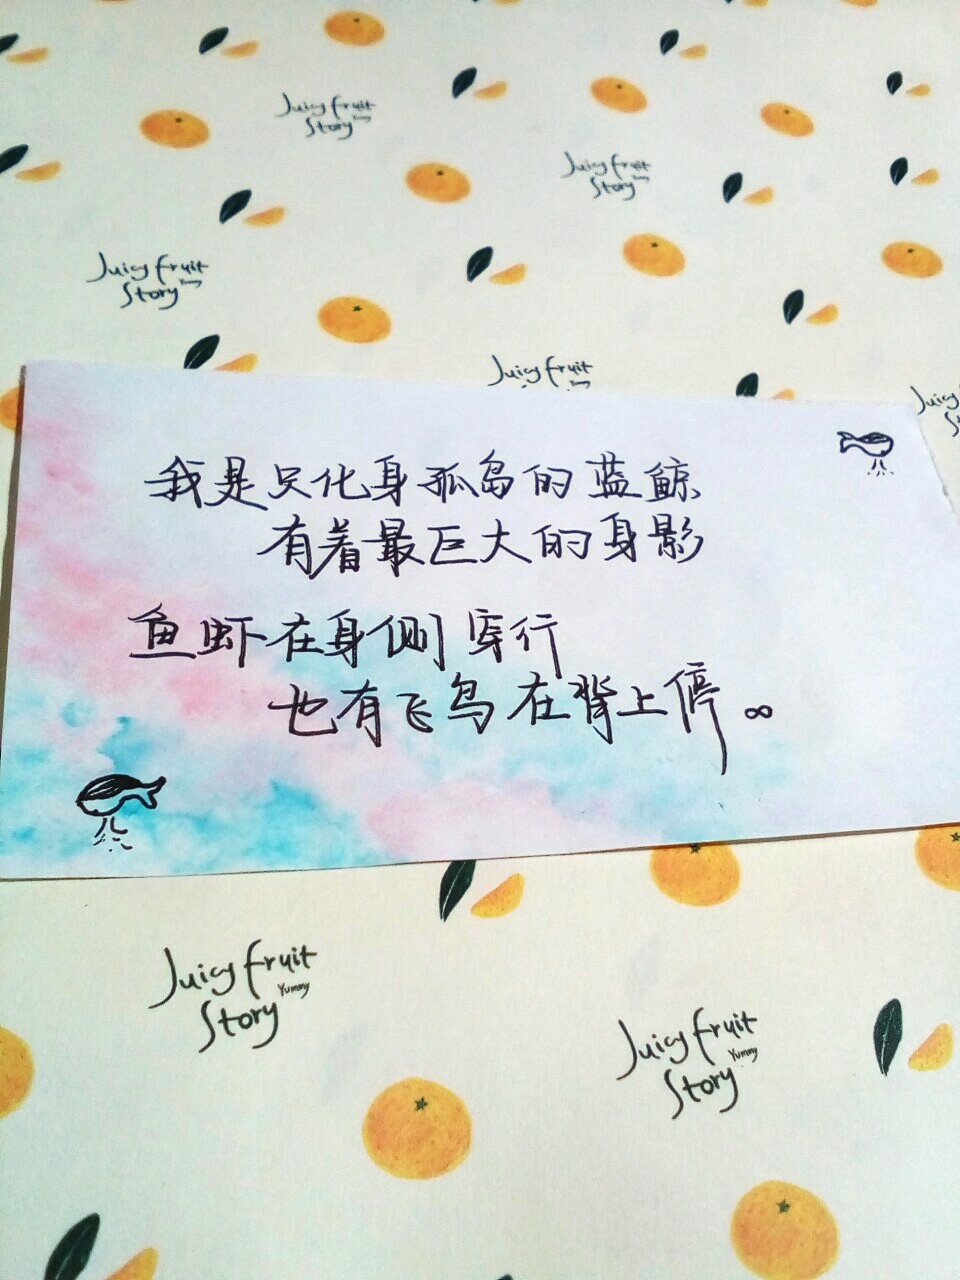 Juicy fruit
Story Yummy
Juicy fruit
Story
Juicy fruit
Story Yummy
Juicy fruit
Juicy
我是只化身孤岛的蓝鲸
有着最巨大的身影
鱼虾在身侧穿行
也有飞鸟在背上停。
Juicy fruit
Yummy
Story
Juicy fruit
Yummy
Story